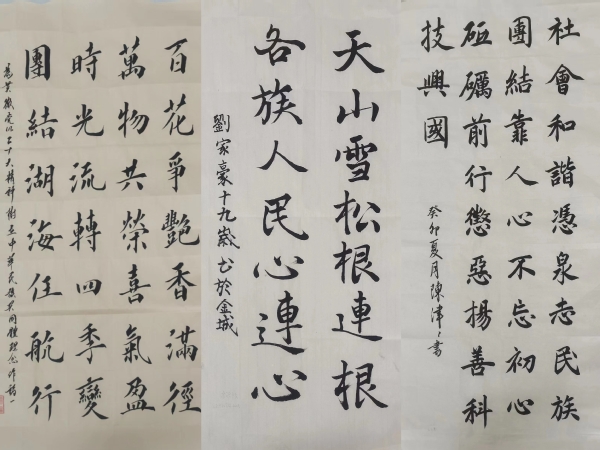 百花爭艷香滿徑
萬物共榮喜氣盈
時光流轉四季變
團結湖海任航行
二十大精神樹立中華民族共同體理念作詩一
天山雪松根連根
各族人民心連心
劉家豪十九歲書於金城
社會和諧憑泉志民族
團結靠人心不忘初心
砥礪前行懲惡揚善科
技興國
癸卯夏月陳津書